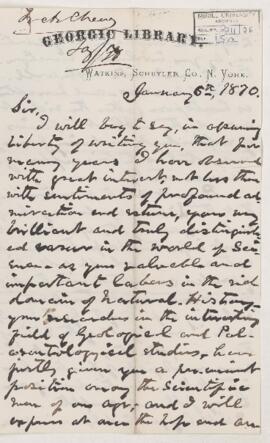 GEORGIC LIBRARY.
WATKINS, SCHUYLER CO., N. YORK.
January 6th, 1870.
Sir,
I will beg to say, in assuming
liberty of writing you, that for
many years I have observed
with great interest, not less than
with sentiments of profound ad-
miration and esteem, your very
brilliant and truly distinguish-
ed career in the world of Sci-
ence — as your valuable and
important labors in the rich
domain of Natural History,
your researches in the interesting
field of Geological and Pal-
aeontological studies, have
justly given you a permanent
position among the Scientific
men of our age; and I will
express at once the hope and